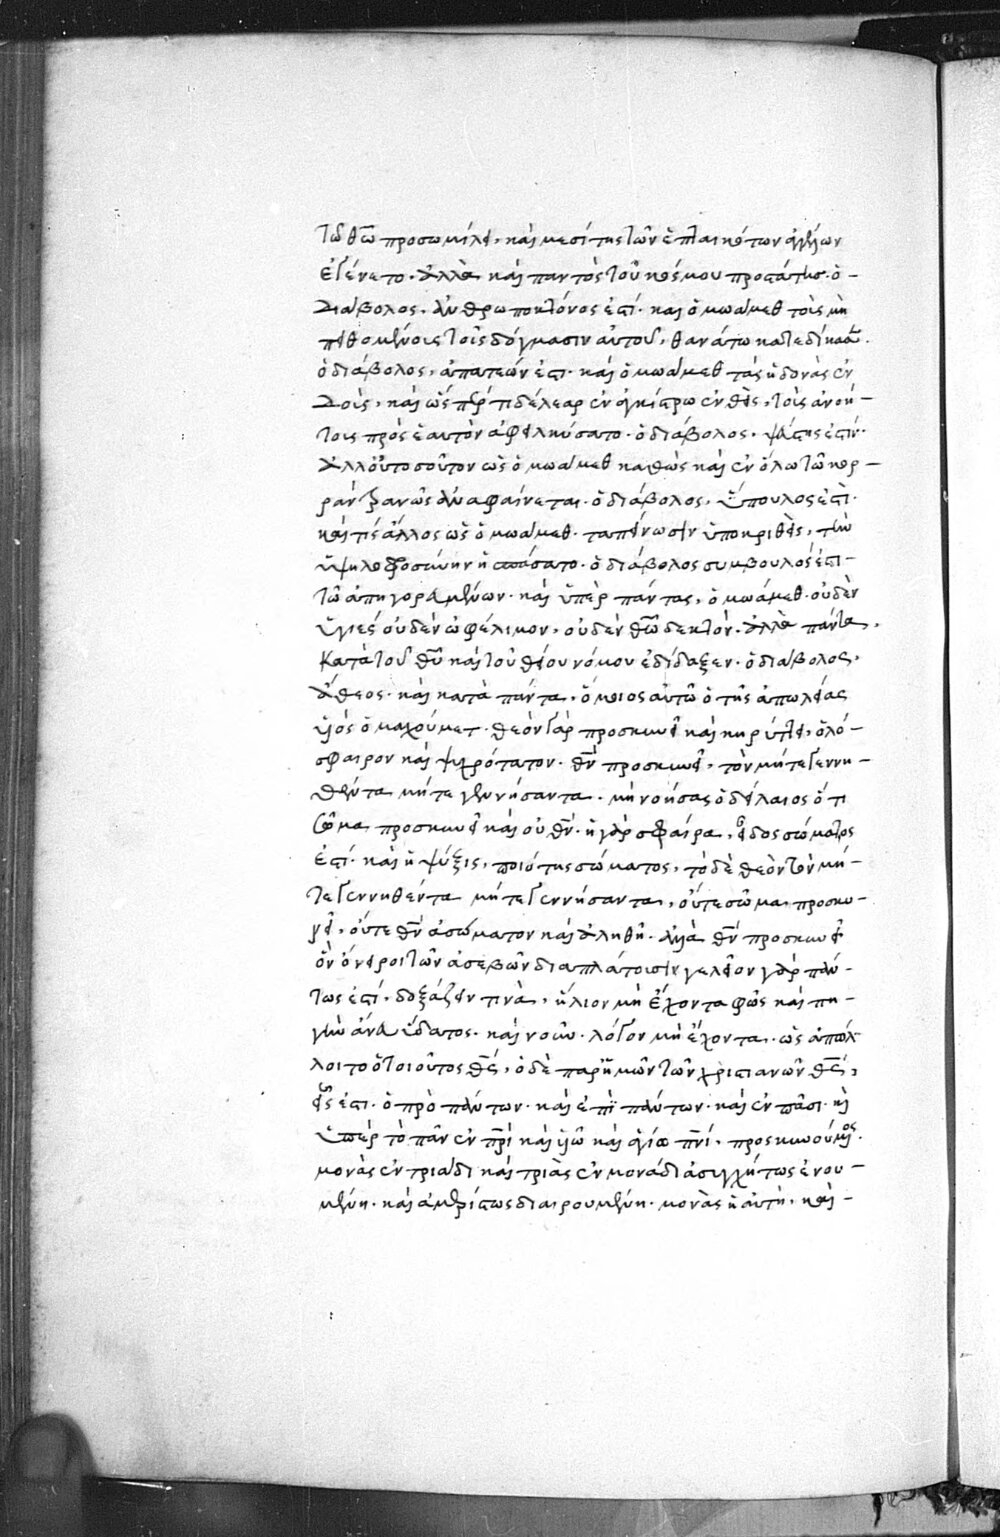 τῶ θῶ προσωμίλει, καὶ μεσίτης τῶν ἐπταικότων ἁγίων
ἐγένετο. ἀλλὰ καὶ παντὸς τοῦ κόσμου προστάτης. ὁ
διάβολος, ἀνθρωποκτόνος ἐστί. καὶ ὁ μωάμεθ τοὺς μὴ
πειθομένοις τοῖς δόγμασιν αὐτοῦ, θανάτω κατεδίκασεν.
ὁ διάβολος, ἀπατεών ἐστι. καὶ ὁ μωάμεθ τὰς ἡδονὰς ἐν
δοὺς, καὶ ὥσπερ τι δέλεαρ ἐν ἀγκίστρω ἐνθεὶς, τοὺς ἀνοή-
τους πρὸς ἑαυτὸν ἀφειλκύσατο. ὁ διάβολος, ψεύστης ἐστίν.
ἀλλ' οὐ τοσοῦτον ὡς ὁ μωάμεθ καθὼς καὶ ἐν ὅλω τῶ κορ-
ράν ἀναφαίνεται. ὁ διάβολος, ὕπουλος ἐστὶ.
καὶ τίς ἄλλος ὡς ὁ μωάμεθ. ταπείνωσιν ὑποκριθεὶς, τὴν
ὑψηλοφροσύνην ἠσπάσατο. ὁ διάβολος σύμβουλός ἐστι
τῶ ἀπηγορευμένων. καὶ ὑπὲρ πάντας, ὁ μωάμεθ. οὐδὲν
ὑγιὲς οὐδὲν ὠφέλιμον, οὐδὲν θῶ δεκτὸν. ἀλλὰ πάντα,
κατὰ τοῦ θῦ καὶ τοῦ θείου νόμου ἐδίδαξεν. ὁ διάβολος,
ἄθεος. καὶ κατὰ πάντα, ὅμοιος αὐτῶ ὁ τῆς ἀπωλείας
υἱὸς ὁ μαχούμετ. θεὸν γὰρ προσκυνεῖ καὶ κηρύττει, ὁλό-
σφαιρον καὶ ψυχρότατον. θν προσκυνεῖ, τὸν μήτε γεννη-
θέντα μήτε γεννήσαντα. μὴ νοήσας ὁ δείλαιος ὅτι
σῶμα προσκυνεῖ καὶ οὐ θν. ἡ γὰρ σφαῖρα, εἶδος σώματος
ἐστί. καὶ ἡ ψύξις, ποιότης σώματος, τὸ δὲ θεὸν τὸν μή-
τε γεννηθέντα μήτε γεννήσαντα, οὔτε σῶμα προσκυ-
νεῖ, οὔτε θν ἀσώματον καὶ ἀληθῆ. ἀλλὰ θν προσκυνεῖ
ὃν ὄνειροι τῶν ἀσεβῶν διαπλάττουσιν γελοῖον γὰρ πάν-
τως ἐστί, δοξάζειν τινὰ, ἥλιον μὴ ἔχοντα φῶς καὶ πη-
γὴν ἄνευ ὕδατος. καὶ νοῦν. λόγον μὴ ἔχοντα. ὡς ἀπόλ-
λοιτο ὁ τοιοῦτος θς, ὁ δὲ παρ' ἡμῶν τῶν χριστιανῶν θς,
εἷς ἐστι. ὁ πρὸ πάντων. καὶ ἐπὶ πάντων. καὶ ἐν πᾶσι. καὶ
ὑπὲρ τὸ πᾶν ἐν πρὶ καὶ υἱῶ καὶ ἁγίω πνί, προσκυνούμενος.
μονὰς ἐν τριάδι καὶ τριὰς ἐν μονάδι ἀσυγχύτως ἑνου-
μένη. καὶ ἀμερίστως διαιρουμένη. μονὰς ἡ αὐτὴ, καὶ-